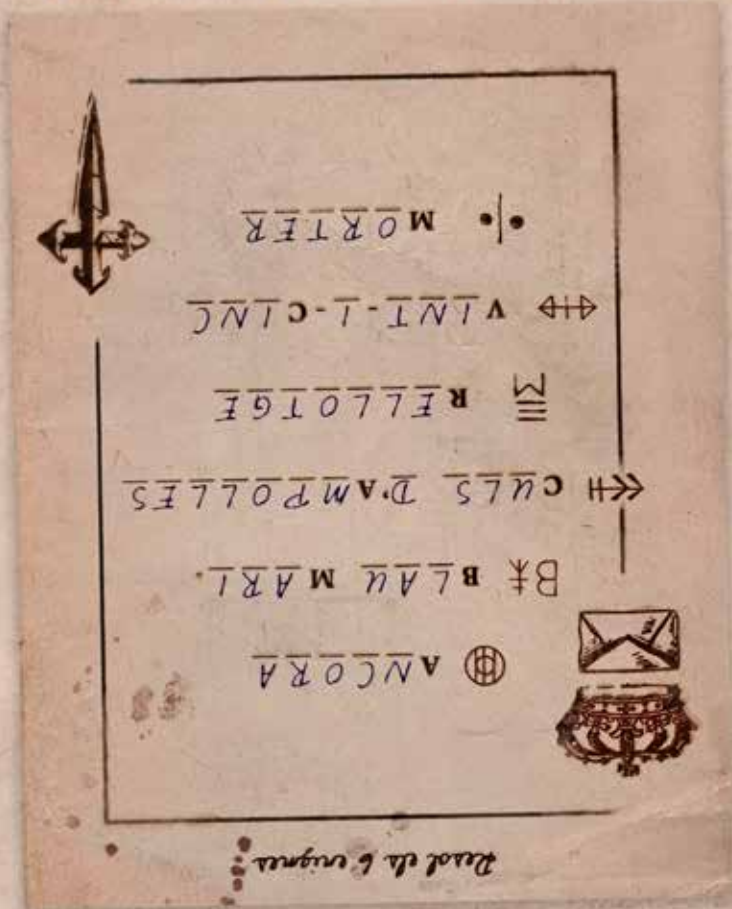 Resol els 6 enigmes
ANCORA
BLAU MARI.
CULS D'AMPOLLES
RELLOTGE
VINT-I-CINC
MORTER